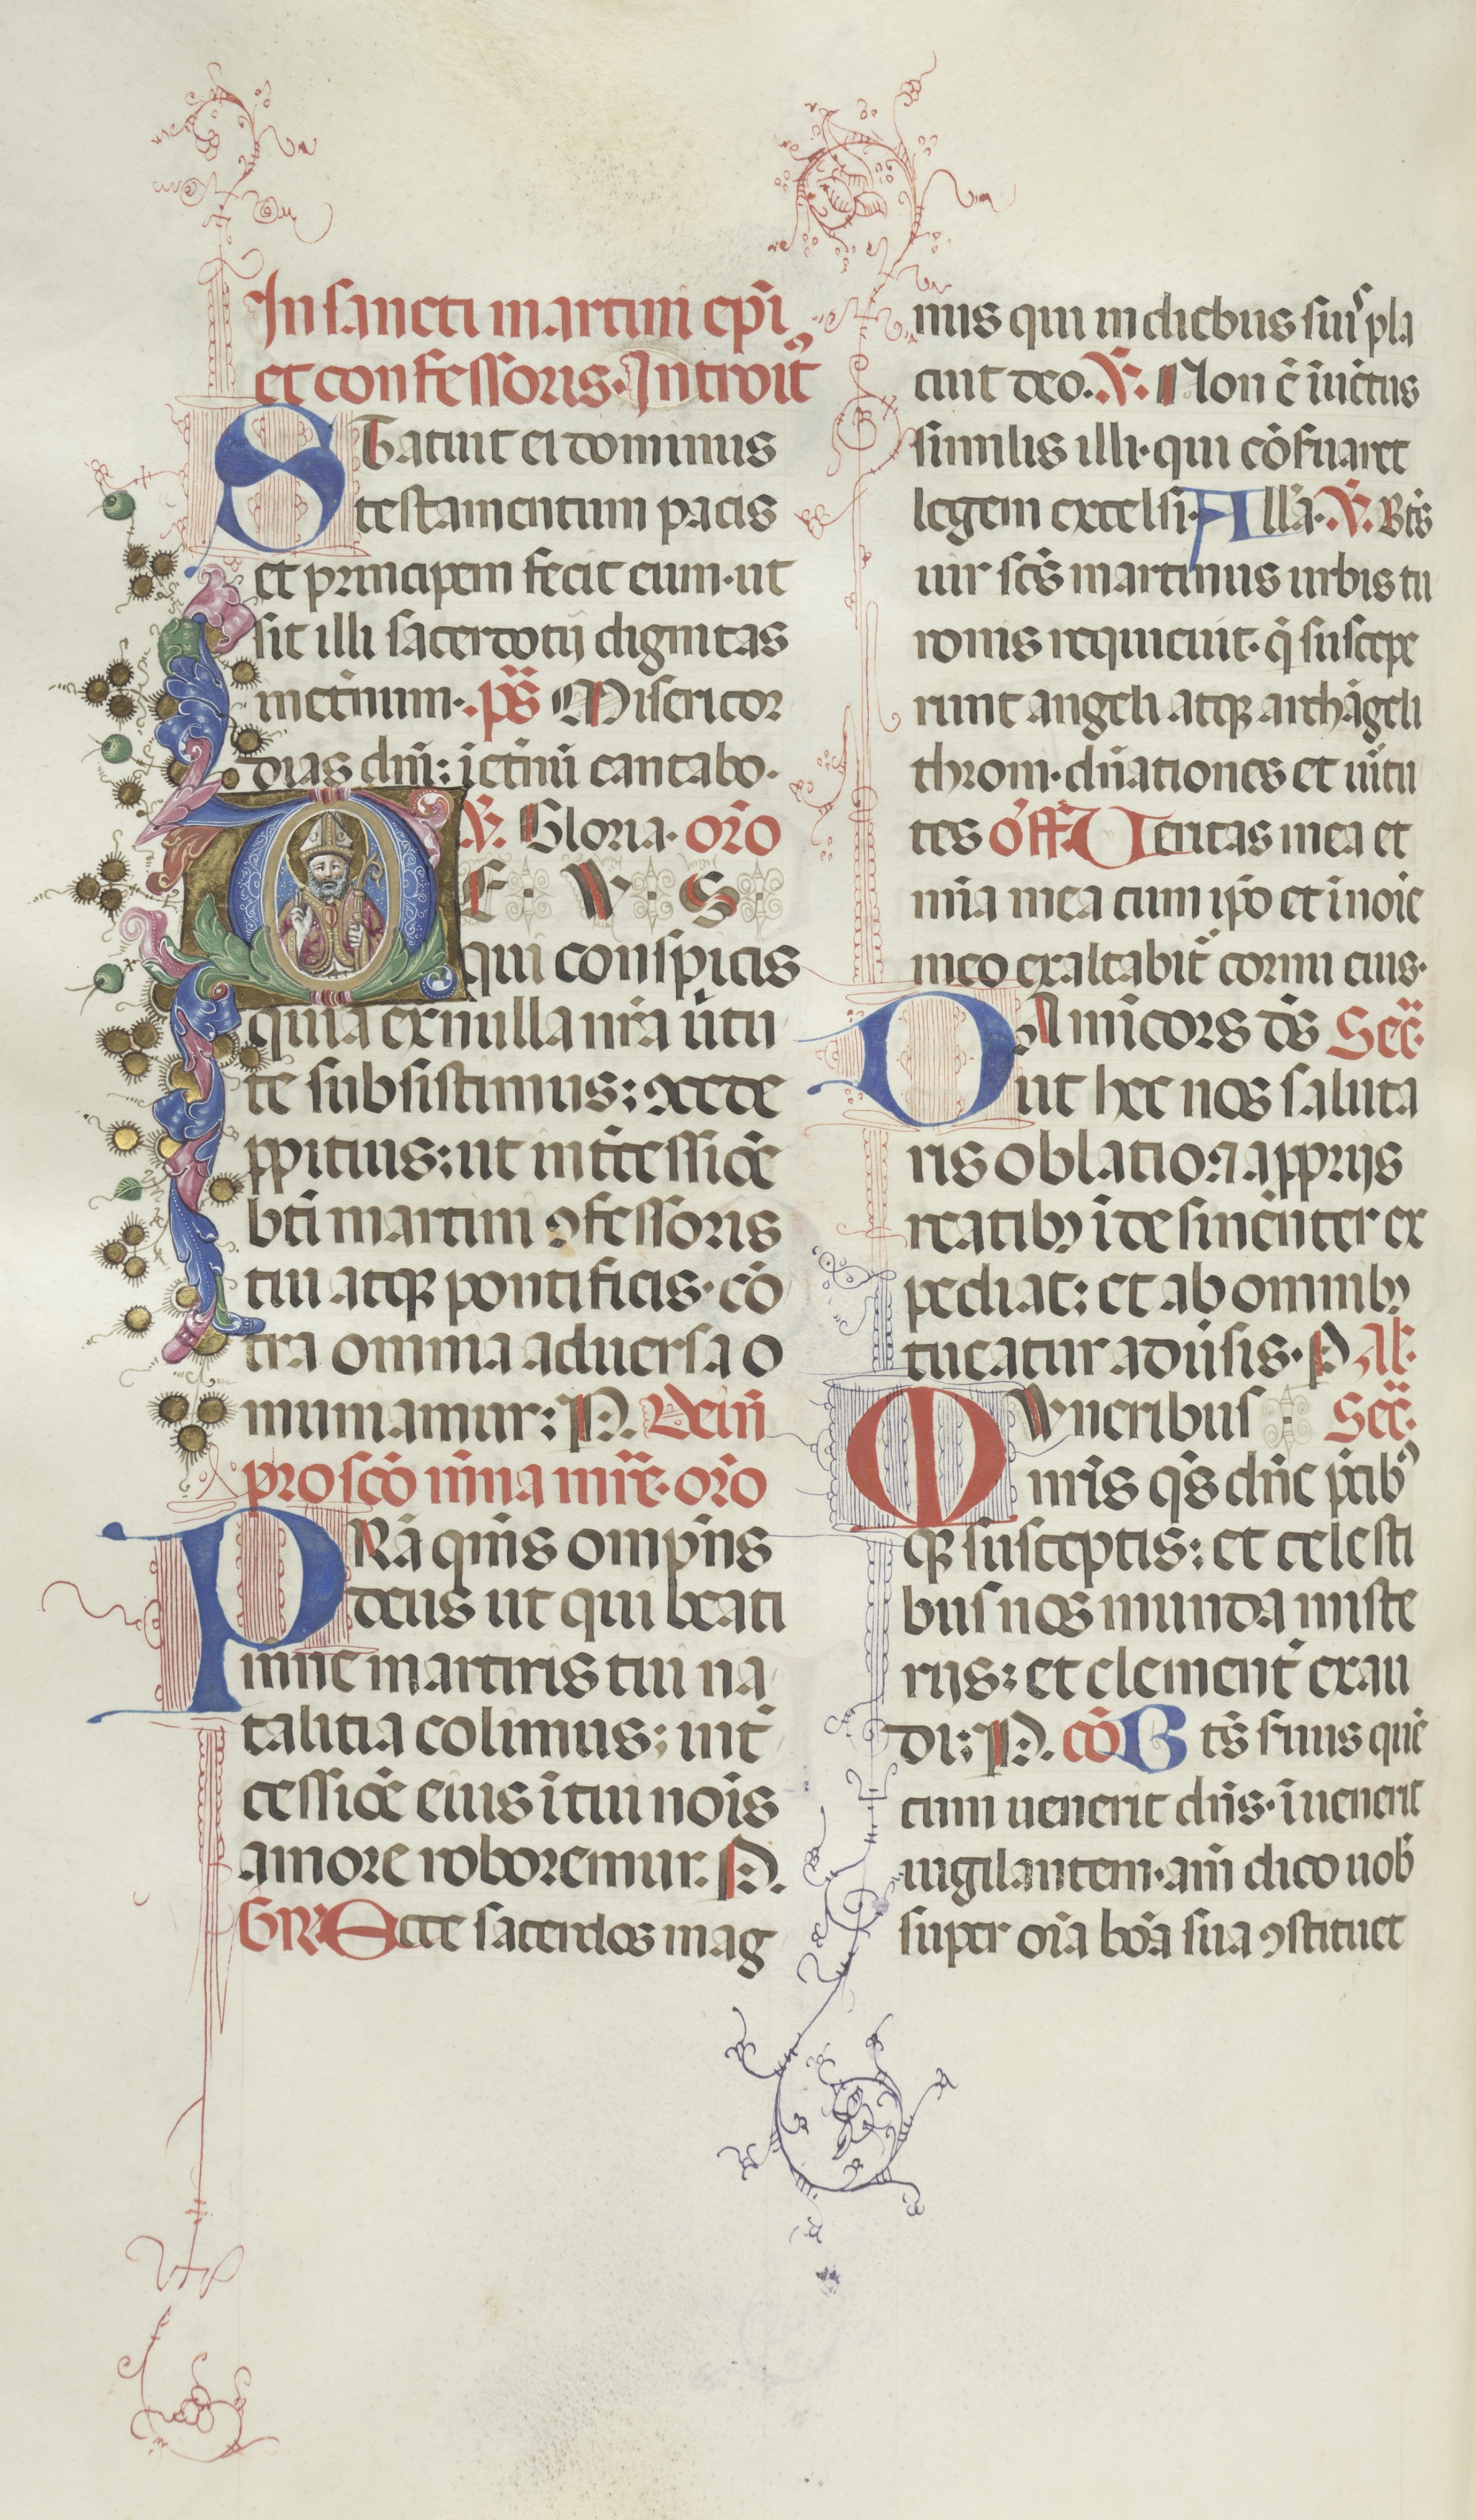 In sancti martini ep̄i
et confessoris. Introit᷑
STatuit ei dominus
testamentum pacis
et principem fecit eum. ut
sit illi sacerdotij dignitas
ineternum. pS̄ Misericor
dias dn̄i: ietnū cantabo.
V. Gloria. or̄o
DEVS
qui conspicis
quia ex nulla nr̄a ūtu
te subsistimus: ↄcede
ppitius: ut int̄cessiōe
bt̄i martini ↄfessoris
tui atqꝫ pontificis. cō
tra omnia aduersa o
muniamur: P. Dein̄
pro sc̄o mēna mr̄e. or̄o
PRā qm̄s omp̄ns
deus ut qui beati
mēne martiris tui na
talitia colimus: int̄
cessiōe eius i tui nois
amore roboremur. P.
GR̄ Ecce sacerdos mag
nus qui in diebus suis pla
cuit deo. V. Non ē iūetus
similis illi. qui cōfuaret
legem excelsi. All̄a. V. Bt̄s
uir scs̄ martinus urbis tu
ronis requieuit. q̄ suscepe
runt angeli atqꝫ archāgeli
throni. dn̄ationes et uītu
tes offR̄ Veritas mea et
mīa mea cum ipō et i noīe
meo exaltabit᷑ cornu eius.
DA miīcors ds̄ Sec̄.
ut hec nos saluta
ris oblatio: ⁊ a pprijs
reatibꝫ ideſinēnter ex
pediat: et ab omnibꝫ
tueatur aduīsis. P. Al.
MVneribus Sec̄.
nrīs qs̄ dn̄e p̄cibꝫ
qꝫ susceptis: et celesti
bus nos munda miste
rijs: et clement᷑ exau
di: P. cō Bts̄ seruus quē
cum uenerit dn̄s. iuenerit
uigilantem. am̄ dico uob̄
super oīa boā sua ↄstituet